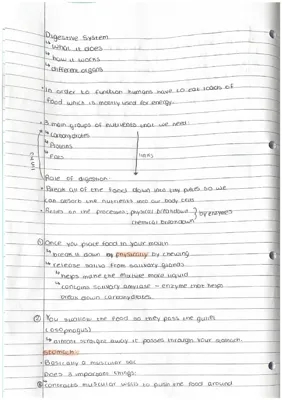 Digestive System
↳ what it does
↳ how it works
↳ different organs
• In order to function humans have to eat loads of
food which is mostly used for energy.
• 3 main groups of nutrients that we need:
↳ Carbohydrates
↳ Proteins
↳ Fats
Role of digestion:
• Break all of the foods down into tiny pieces so we
can absorb the nutrients into our body cells
• Relies on the processes; physical breakdown } by enzymes
chemical breakdown
① Once you place food to your mouth
↳ break it down by physically by chewing
↳ release saliva from salivary glands
↳ helps make the mixture more liquid
↳ contains salivary amylase - enzyme that helps
break down carbohydrates.
② You swallow the food so they pass the gullet
(oesophagus)
↳ almost straight away it passes through your
stomach:
• Basically a muscular sac
Does 3 important things:
① contracts muscular walls to push the food around